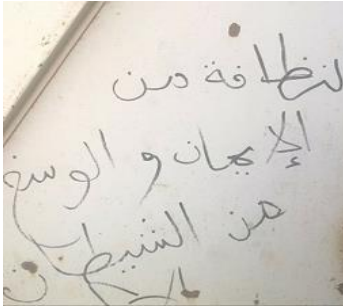 النظافة من
الإيمان و الوسخ
من الشيطان